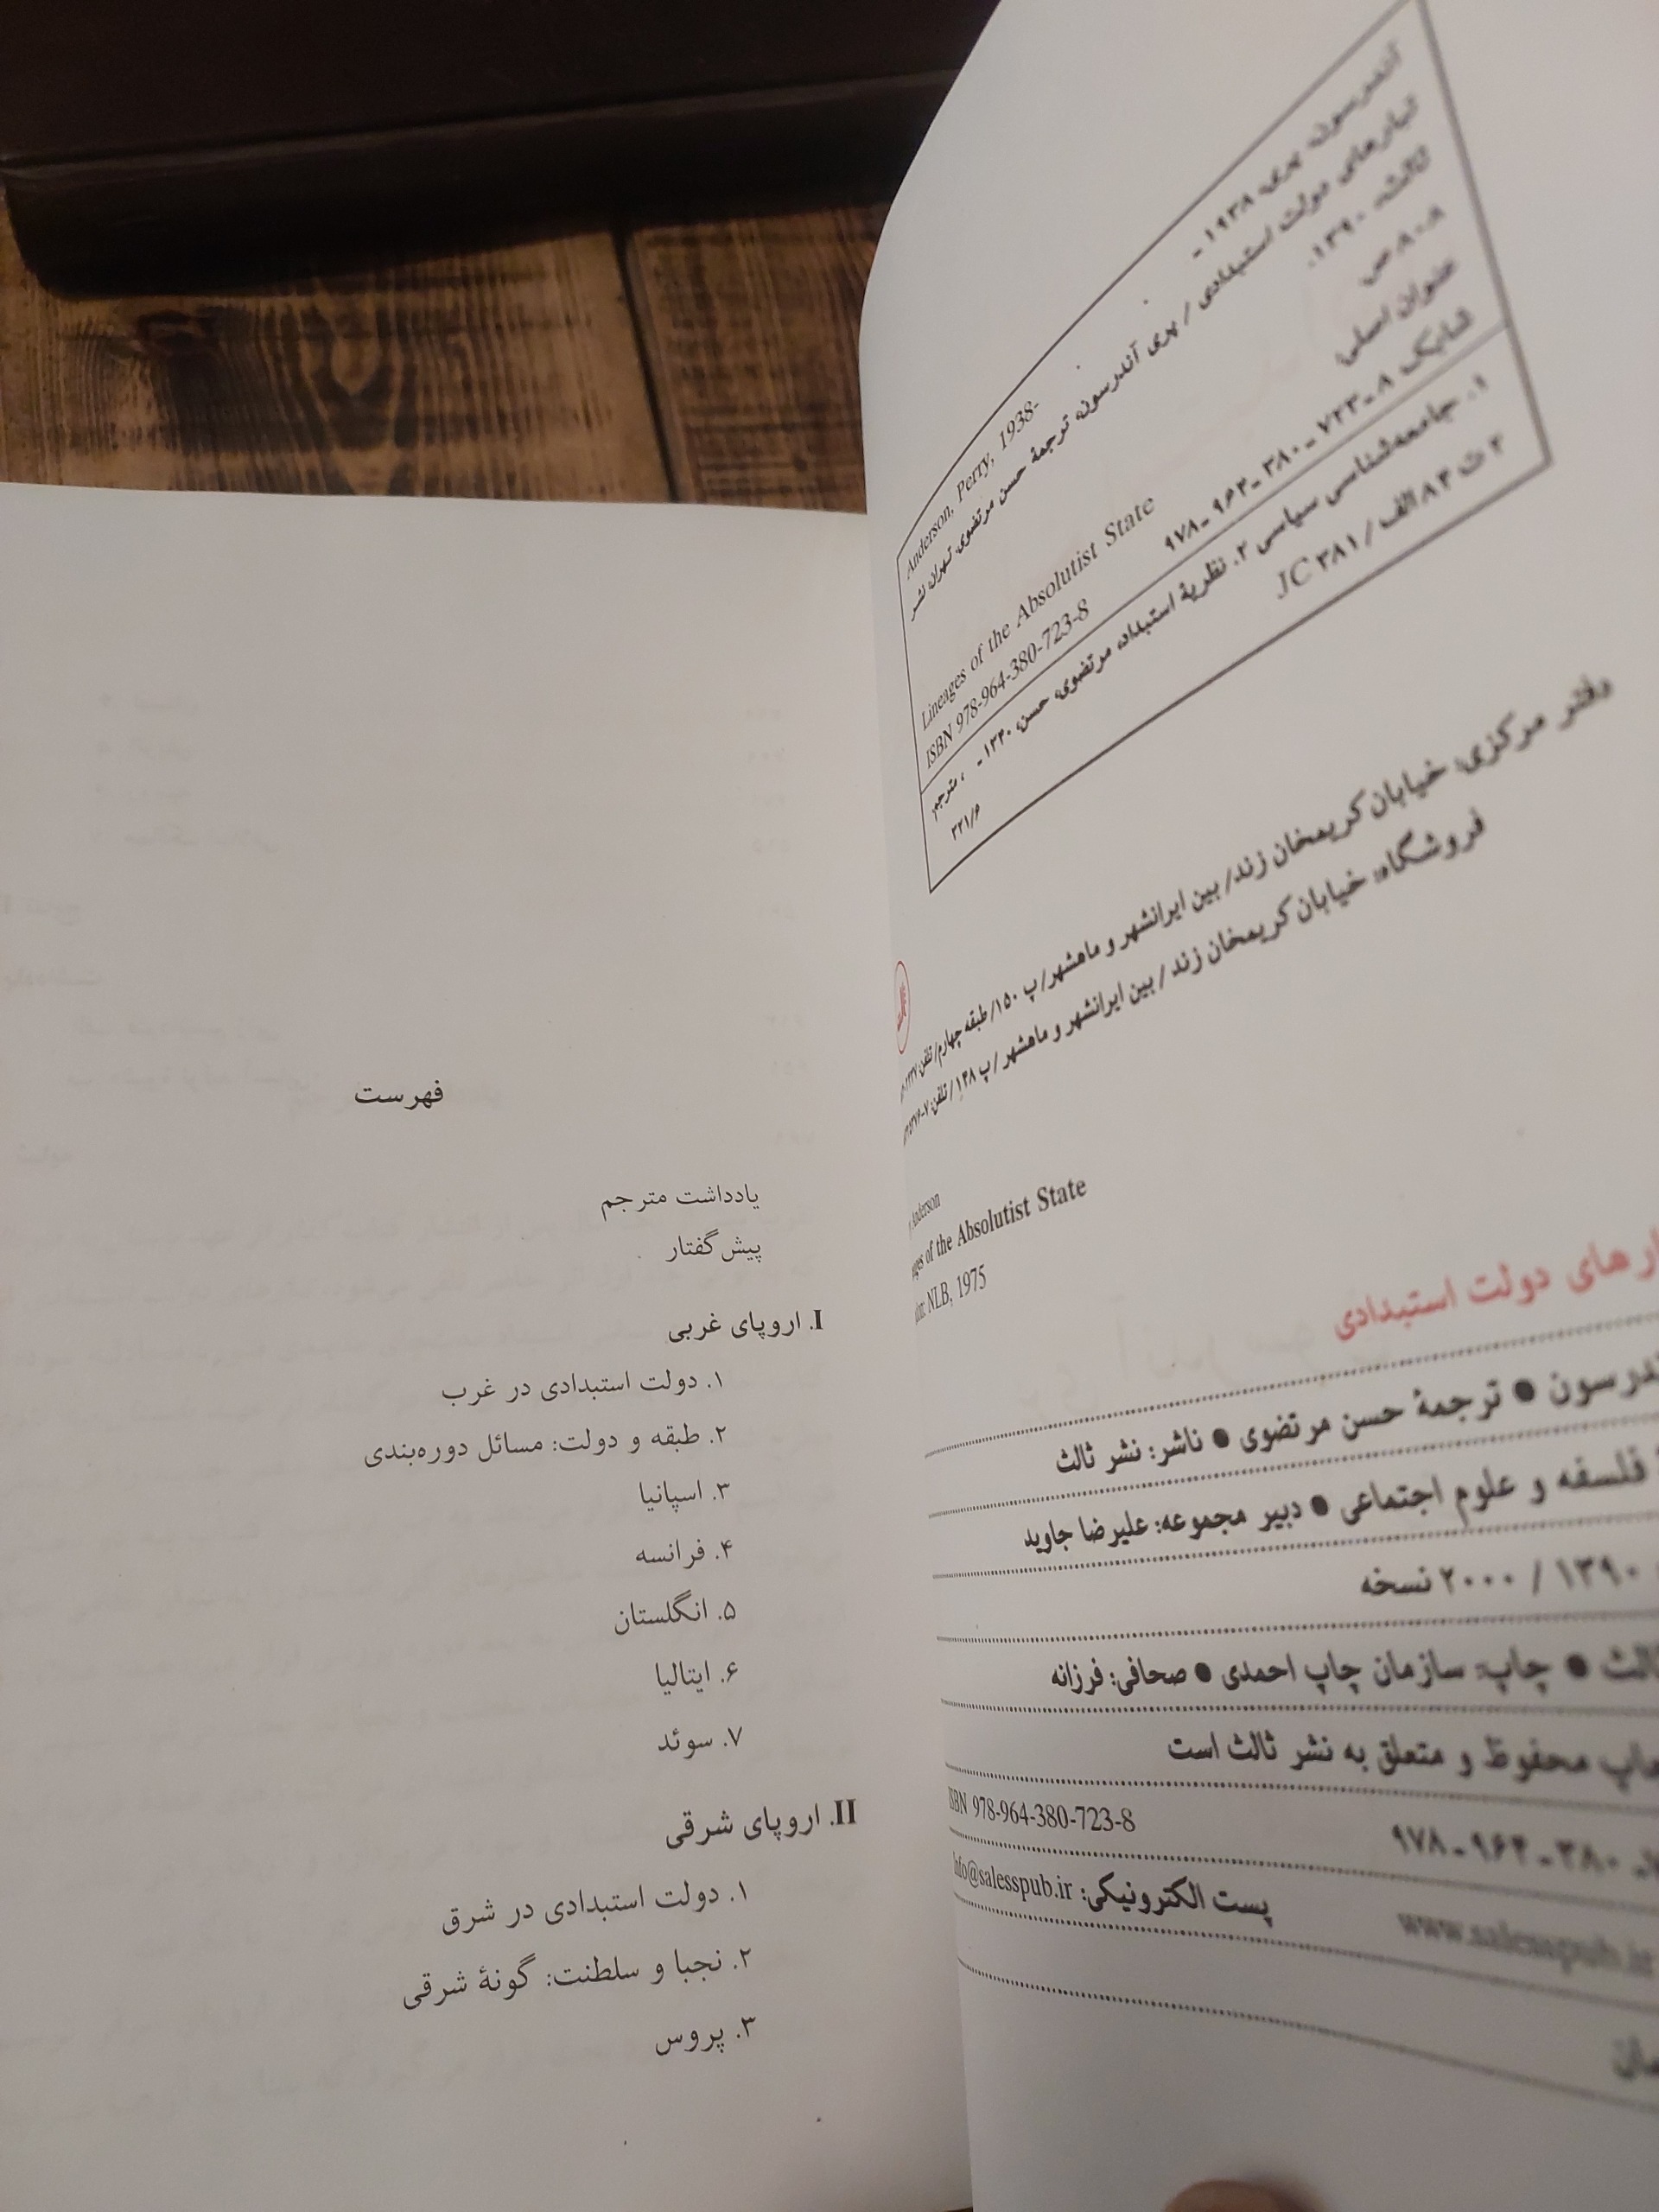 آندرسون، پری، ۱۹۳۸ -
Anderson, Perry, 1938-
تبارهای دولت استبدادی / پری آندرسون، ترجمهٔ حسن مرتضوی، تهران، نشر
ثالث، ۱۳۹۰.
۸۰۸ ص
عنوان اصلی:
Lineages of the Absolutist State
شابک ۸ - ۷۲۳ - ۳۸۰ - ۹۶۴ - ۹۷۸
ISBN 978-964-380-723-8
۱. جامعه‌شناسی سیاسی ۲. نظریهٔ استبداد، مرتضوی، حسن، ۱۳۴۰ - ، مترجم.
JC ۳۸۱ /
۳۲۱/۶
دفتر مرکزی: خیابان کریمخان زند/ بین ایرانشهر و ماهشهر/ پ ۱۵۰/ طبقه چهارم/ تلفن:
فروشگاه: خیابان کریمخان زند / بین ایرانشهر و ماهشهر / پ ۱۴۸/ تلفن:
Anderson
of the Absolutist State
NLB, 1975
دولت استبدادی
ترجمهٔ حسن مرتضوی ● ناشر: نشر ثالث
فلسفه و علوم اجتماعی ● دبیر مجموعه: علیرضا جاوید
۱۳۹۰ / ۲۰۰۰ نسخه
● چاپ: سازمان چاپ احمدی ● صحافی: فرزانه
محفوظ و متعلق به نشر ثالث است
ISBN 978-964-380-723-8
۳۸۰ - ۹۶۴ - ۹۷۸
پست الکترونیکی: Info@salesspub.ir
www.salesspub.ir
فهرست
یادداشت مترجم
پیش‌گفتار
I. اروپای غربی
۱. دولت استبدادی در غرب
۲. طبقه و دولت: مسائل دوره‌بندی
۳. اسپانیا
۴. فرانسه
۵. انگلستان
۶. ایتالیا
۷. سوئد
II. اروپای شرقی
۱. دولت استبدادی در شرق
۲. نجبا و سلطنت: گونهٔ شرقی
۳. پروس